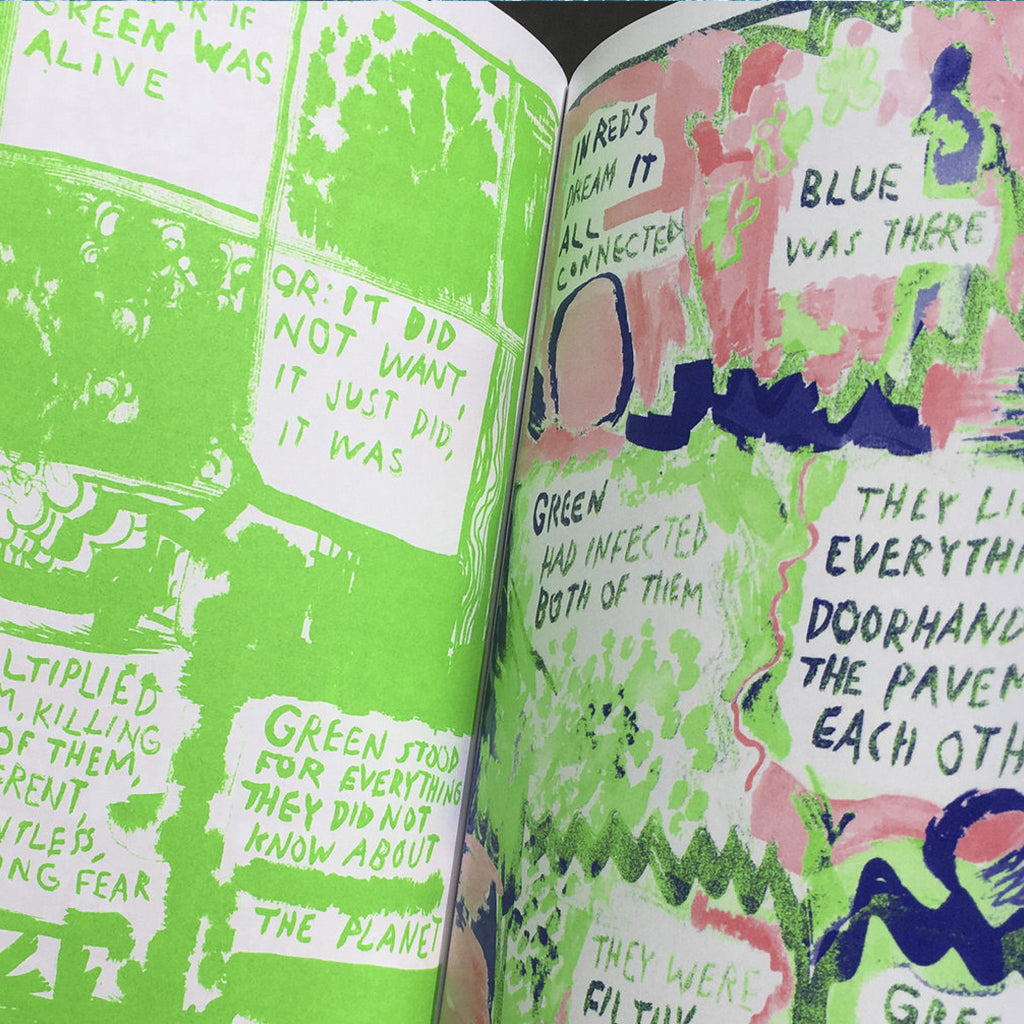 IF
GREEN WAS
ALIVE
OR: IT DID
NOT WANT,
IT JUST DID,
IT WAS
LTIPLIED
M, KILLING
OF THEM,
ERENT,
NTLESS,
NG FEAR
GREEN STOOD
FOR EVERYTHING
THEY DID NOT
KNOW ABOUT
THE PLANET
IN RED'S
DREAM IT
ALL
CONNECTED
BLUE
WAS THERE
GREEN
HAD INFECTED
BOTH OF THEM
THEY LI
EVERYTHI
DOORHAND
THE PAVEM
EACH OTH
THEY WERE
FILTHY
GREE